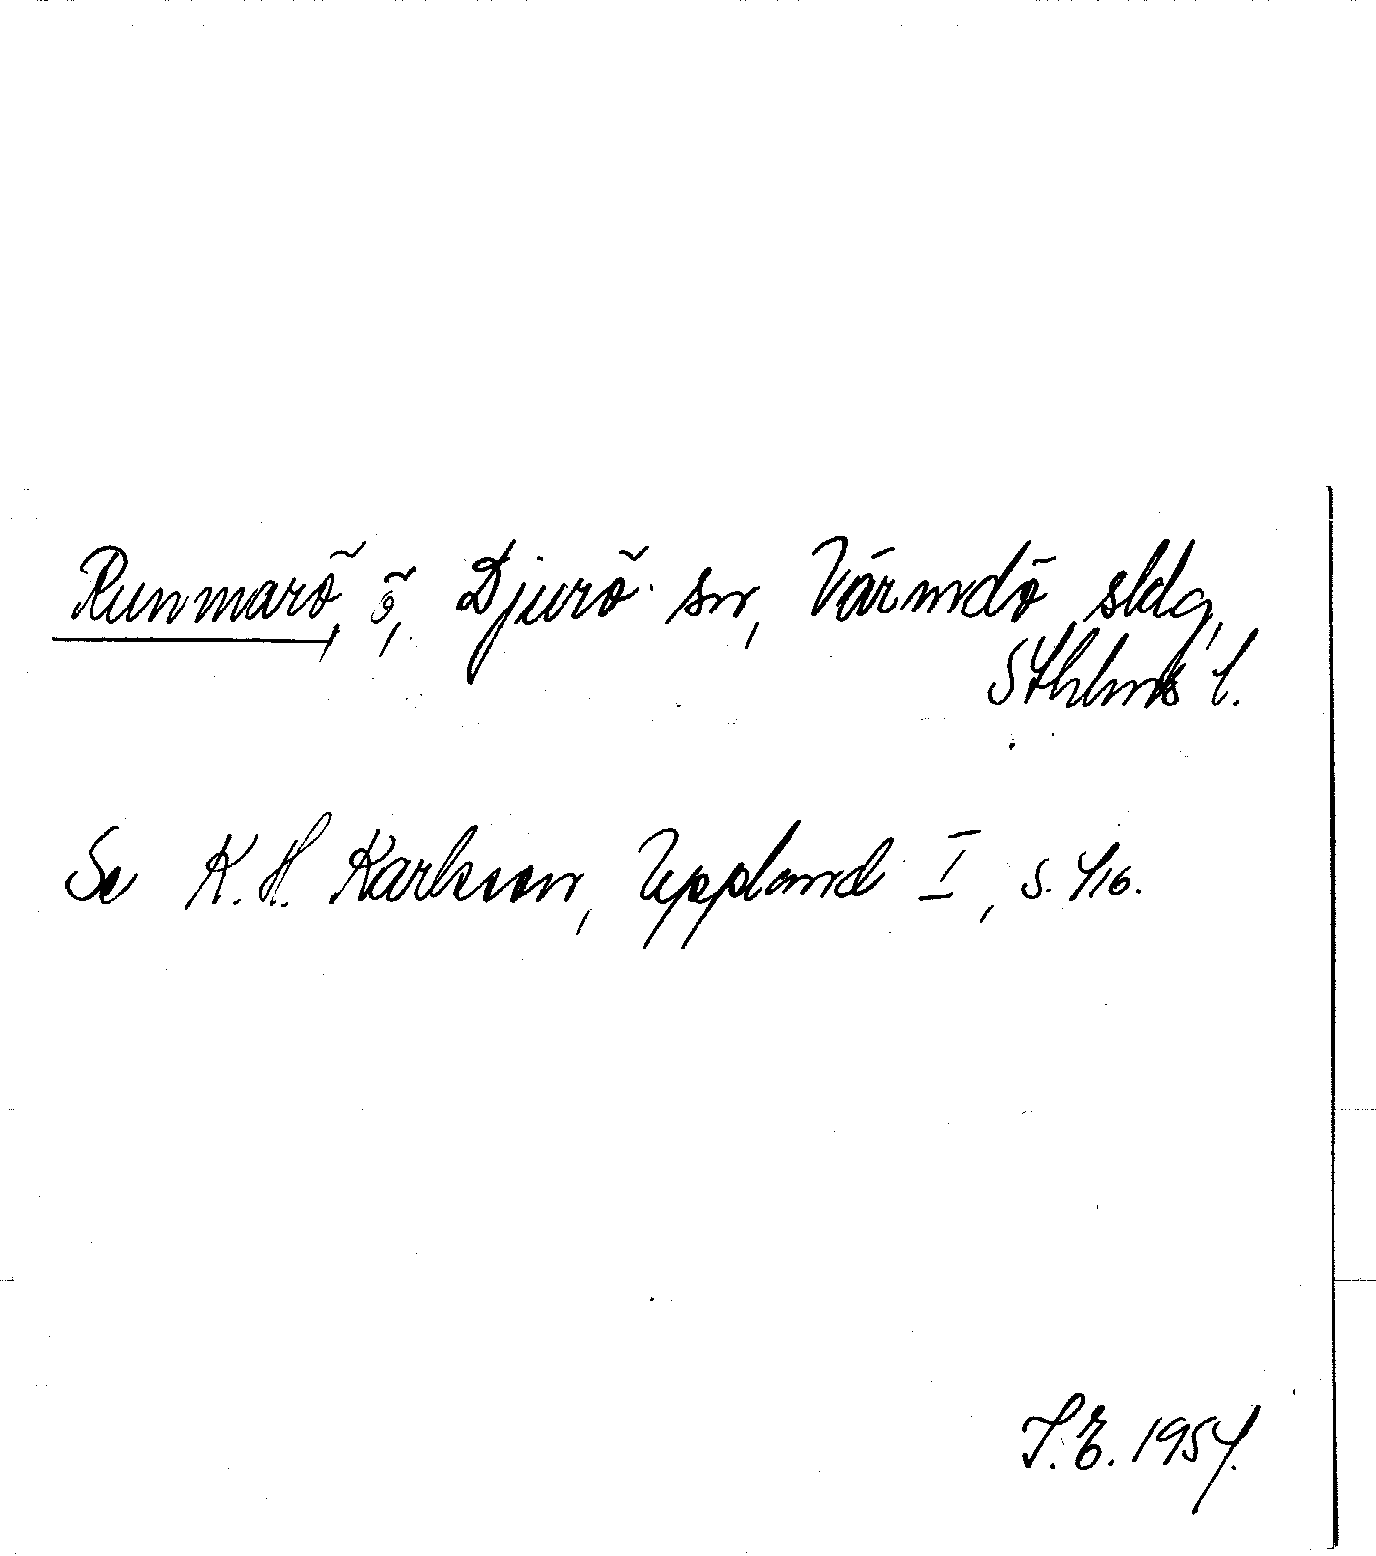 Runmarö, ö, Djurö sn, Värmdö skldg,
Sthlms l.
Se K. H. Karlsson, Uppland I, s. 416.
S. E. 1954.